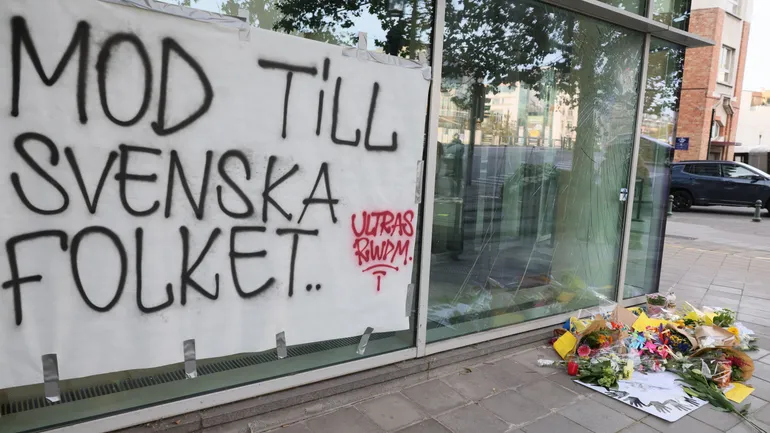 MOD TILL
SVENSKA
FOLKET..
ULTRAS
RWDM.